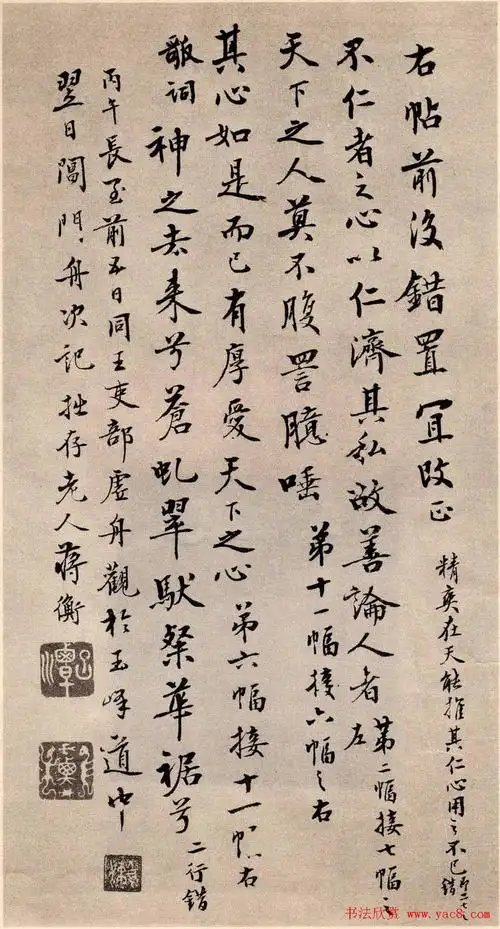 右帖前後錯置宜改正
精爽在天能推其仁心用之不已
不仁者之心以仁濟其私故善論人者
第二幅接七幅之左
天下之人莫不腹詈臆唾
第十一幅接六幅之右
其心如是而已有厚愛天下之心
第六幅接十一幅右
歌詞神之去来兮蒼虬翠馱粲華裾兮
二行錯
丙午長至前五日同王吏部虛舟觀於玉峰道中
翌日閶門舟次記拙存老人蔣衡
书法欣赏 www.yac8.com